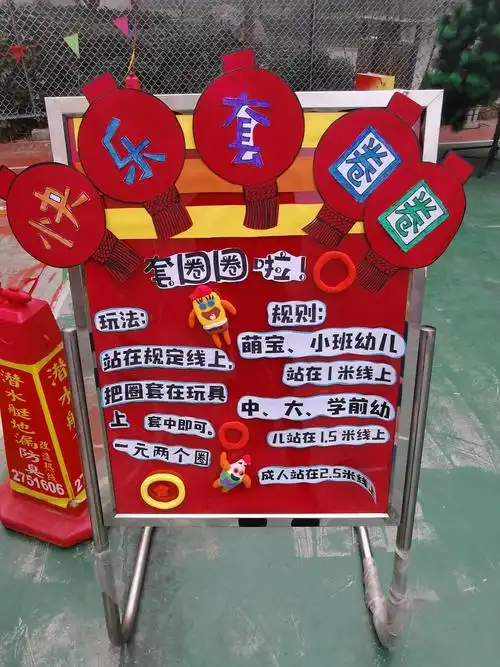 快乐套圈圈
套圈圈啦!
玩法:
站在规定线上,
把圈套在玩具
上 套中即可。
一元两个圈
规则:
萌宝、小班幼儿
站在1米线上
中、大、学前幼
儿站在1.5米线上
成人站在2.5米线上
潜水艇地漏防臭
改造热线
2751606
潜水艇
27